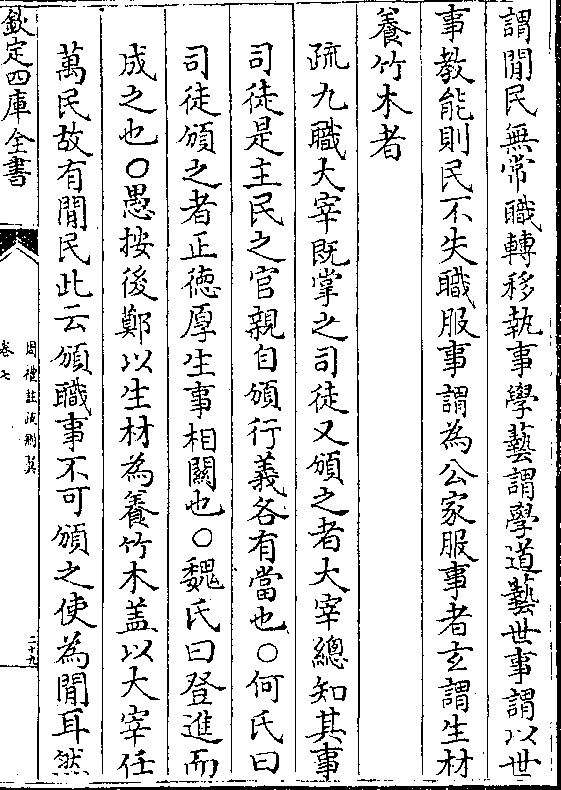 謂閒民無常職轉移執事學藝謂學道藝世事謂以世
事教能則民不失職服事謂為公家服事者玄謂生材
養竹木者
疏九職大宰既掌之司徒又頒之者大宰總知其事
司徒是主民之官親自頒行義各有當也○何氏曰
司徒頒之者正徳厚生事相關也○魏氏曰登進而
成之也○愚按後鄭以生材為養竹木盖以大宰任
萬民故有閒民此云頒職事不可頒之使為閒耳然
欽定四庫全書
周禮註疏刪翼
卷七
二十九